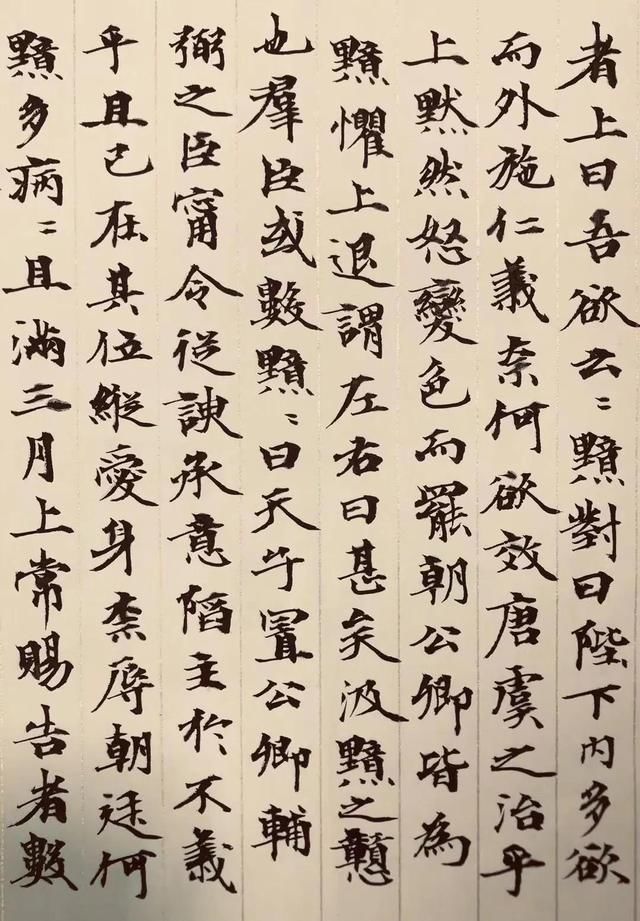 者上曰吾欲云〻黯對曰陛下內多欲
而外施仁義柰何欲效唐虞之治乎
上默然怒變色而罷朝公卿皆為
黯懼上退謂左右曰甚矣汲黯之戇
也羣臣或數黯〻曰天子置公卿輔
弼之臣甯令從諛承意陷主於不義
乎且已在其位縱愛身柰辱朝廷何
黯多病〻且滿三月上常賜告者數